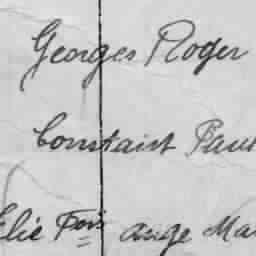 Georges Roger
Constant Paul
Elie Fois ange Ma